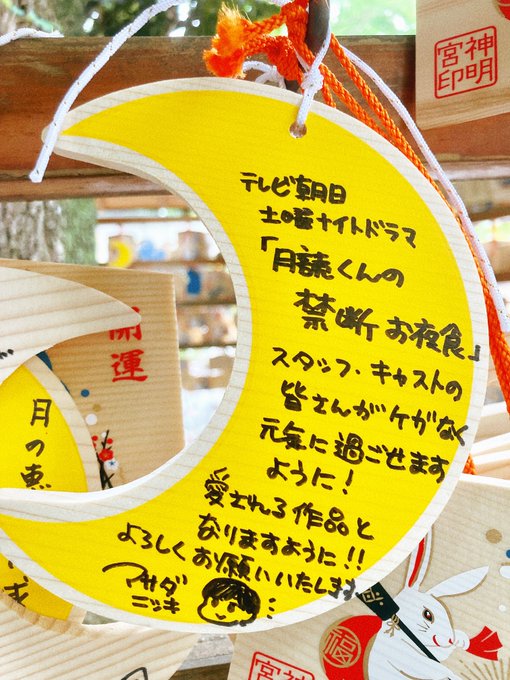 テレビ朝日
土曜ナイトドラマ
「月読くんの
禁断お夜食」
スタッフ・キャストの
皆さんがケガなく
元気に過ごせます
ように!
愛される作品と
なりますように!!
よろしくお願いいたします
アサダ
ニッキ
神明
宮印
開運
月の恵
福
神明
宮印